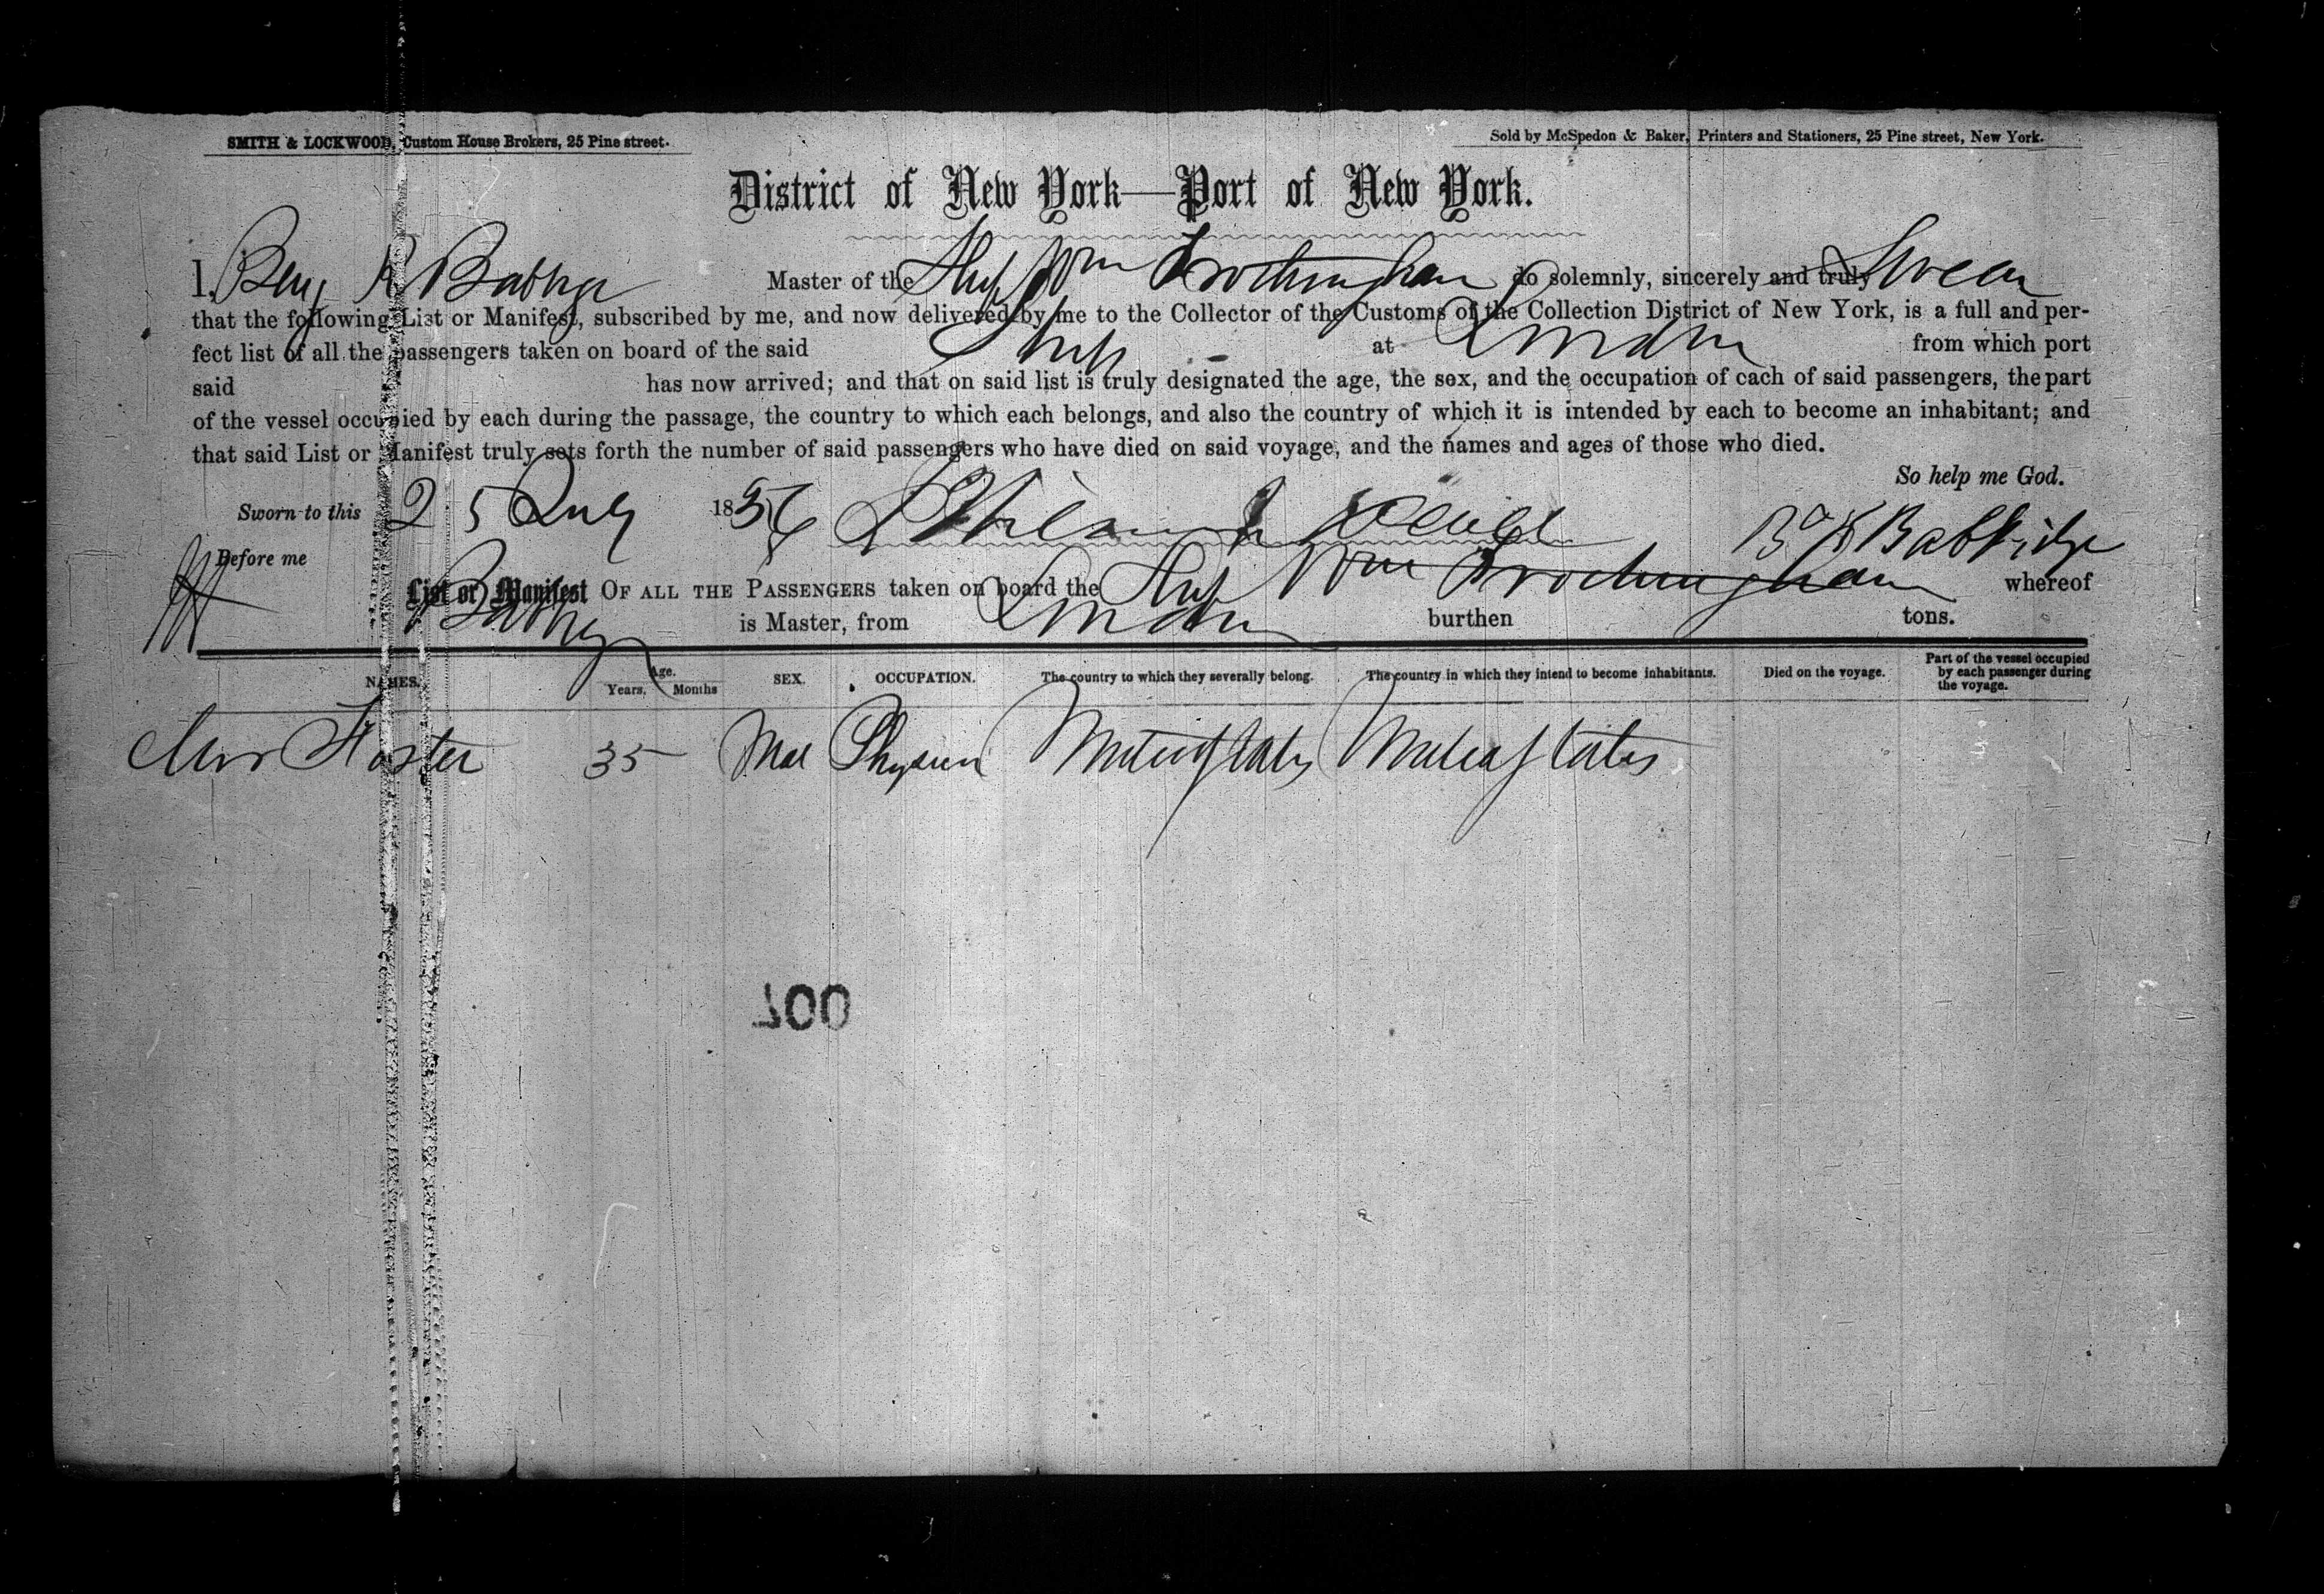 SMITH & LOCKWOOD, Custom House Brokers, 25 Pine street.
Sold by McSpedon & Baker, Printers and Stationers, 25 Pine street, New York.
District of New York—Port of New York.
I, Benj R Babbge Master of the Ship Wm Frothingham do solemnly, sincerely and truly Swear
that the following List or Manifest, subscribed by me, and now delivered by me to the Collector of the Customs of the Collection District of New York, is a full and per-
fect list of all the passengers taken on board of the said Ship at London from which port
said has now arrived; and that on said list is truly designated the age, the sex, and the occupation of each of said passengers, the part
of the vessel occupied by each during the passage, the country to which each belongs, and also the country of which it is intended by each to become an inhabitant; and
that said List or Manifest truly sets forth the number of said passengers who have died on said voyage, and the names and ages of those who died.
So help me God.
Sworn to this 25 July 1856 B R Babbidge
Before me
List or Manifest OF ALL THE PASSENGERS taken on board the Ship Wm Frothingham whereof
is Master, from London burthen tons.
NAMES. Age. Years. Months SEX. OCCUPATION. The country to which they severally belong. The country in which they intend to become inhabitants. Died on the voyage. Part of the vessel occupied by each passenger during the voyage.
Foster 35 Mal Physician United States United States
700